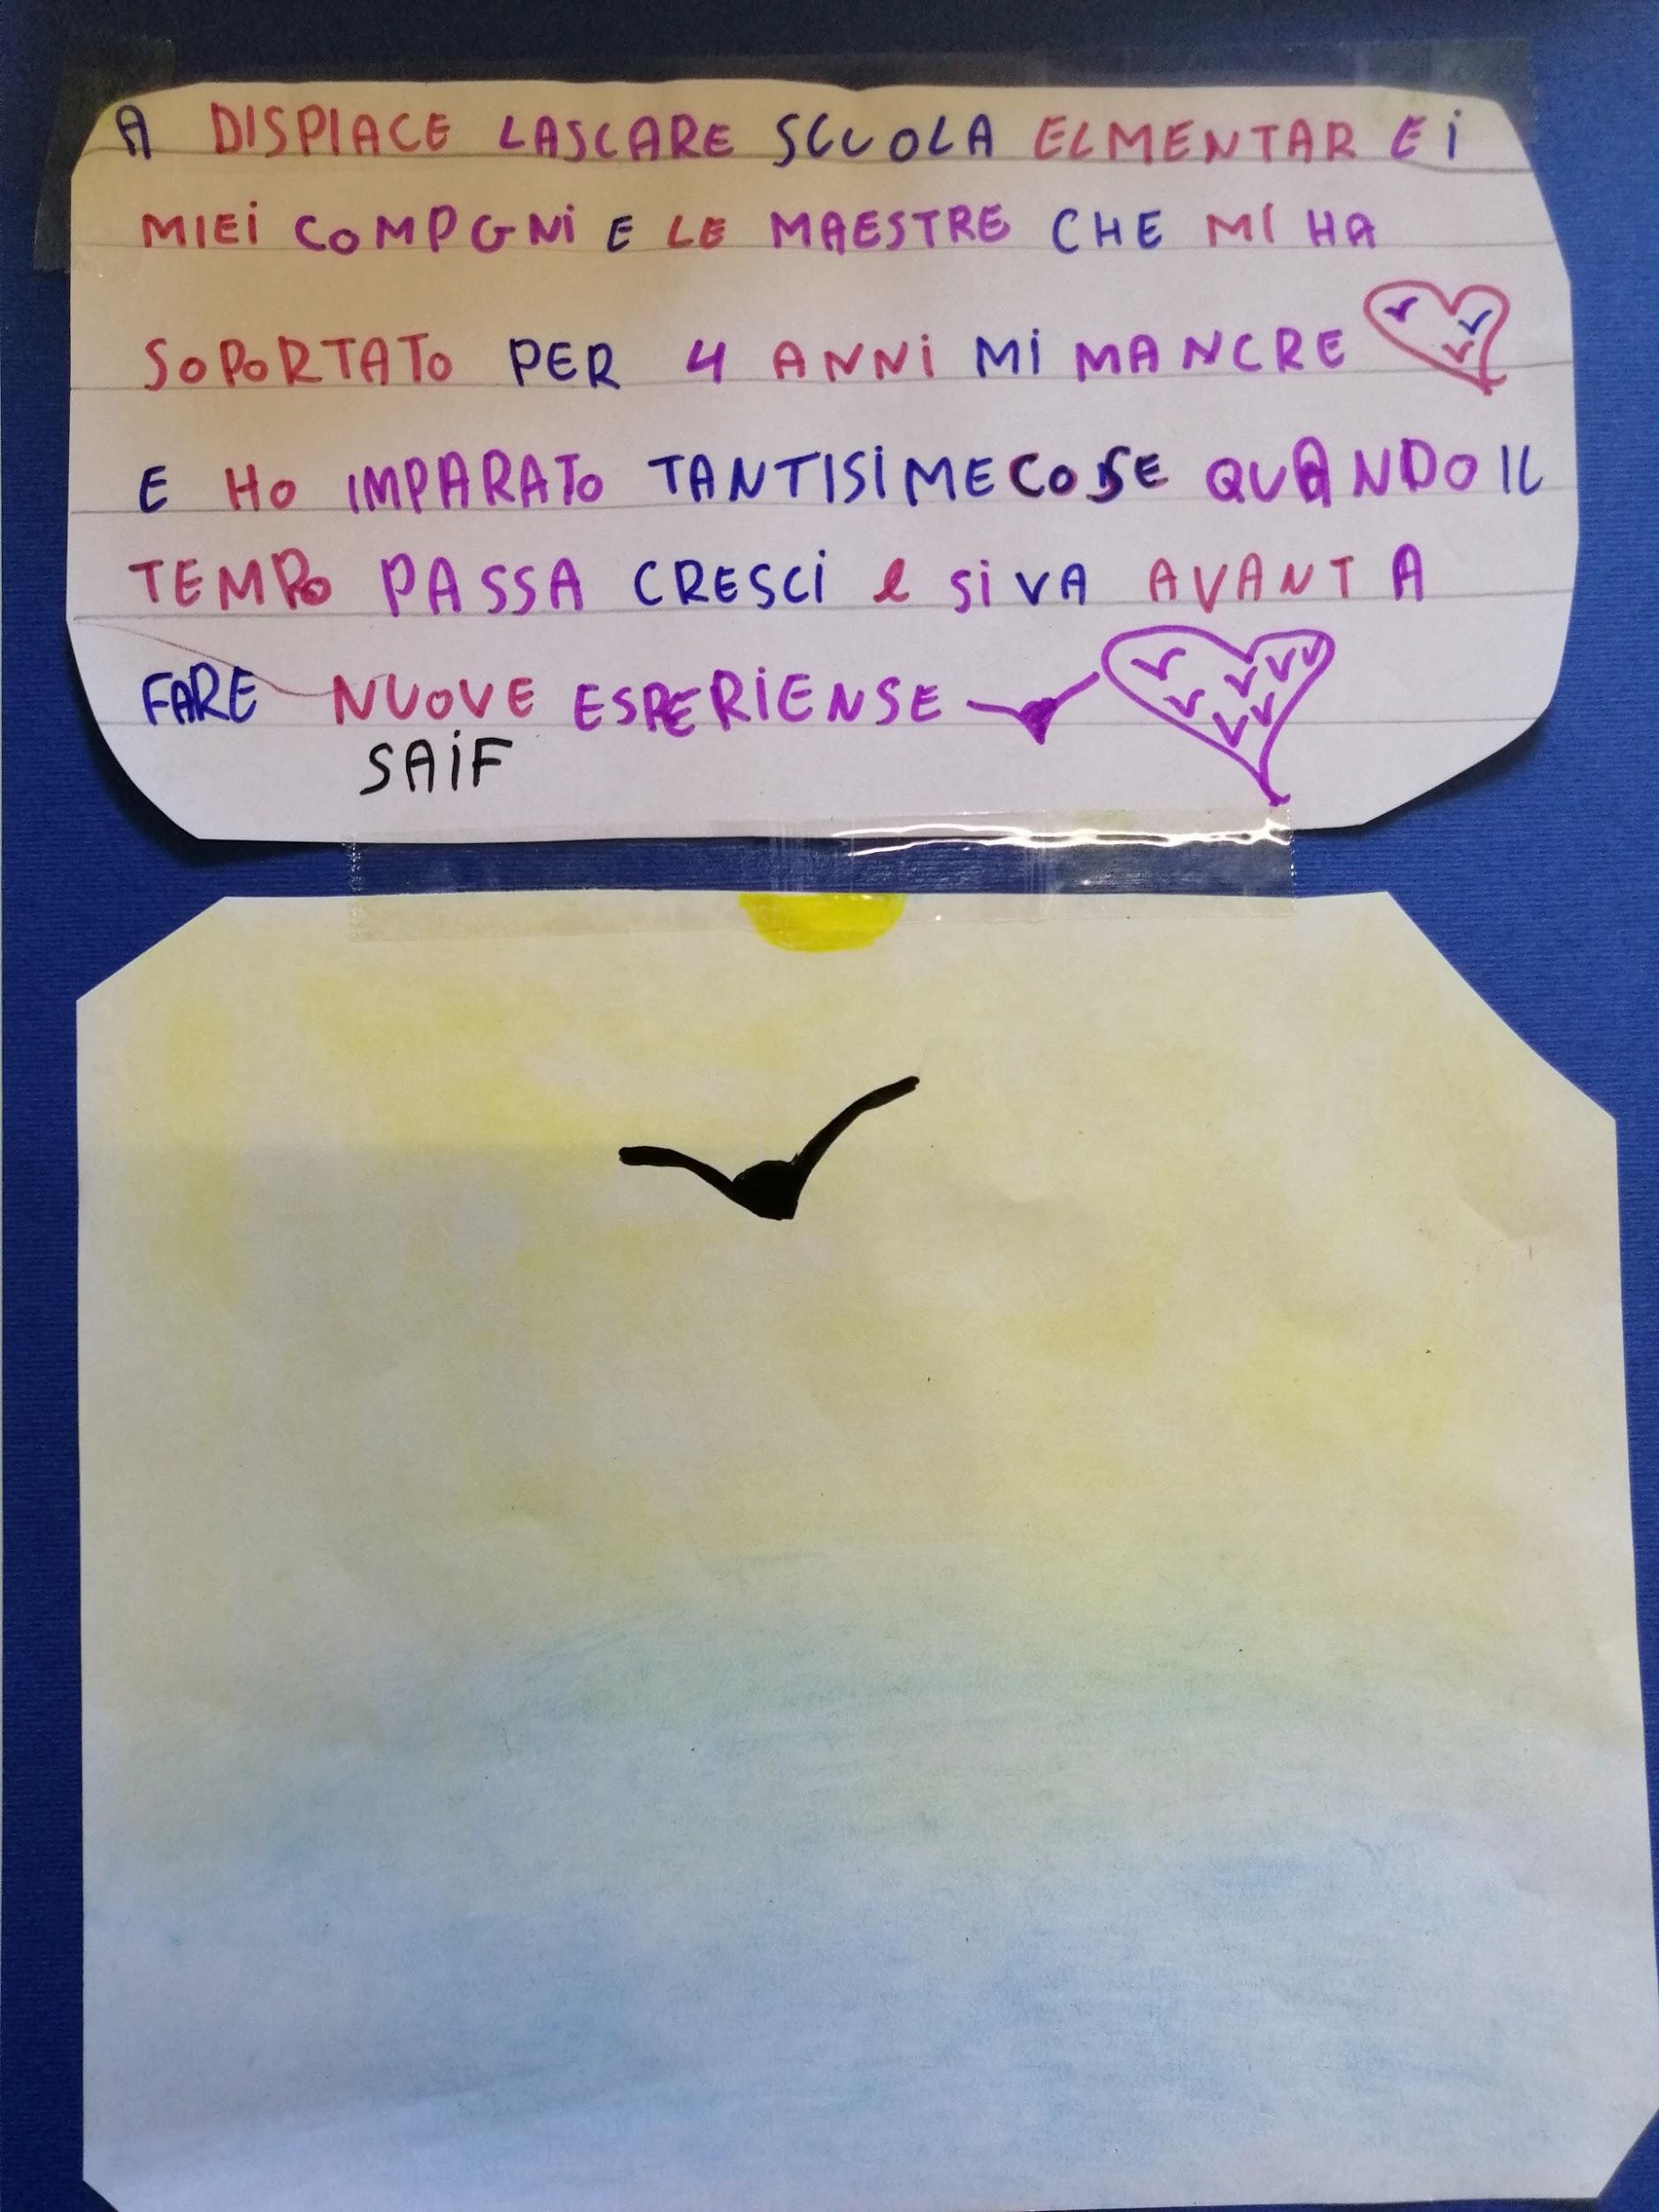 A DISPIACE LASCARE SCUOLA ELMENTAR E I
MIEI COMPGNI E LE MAESTRE CHE MI HA
SOPORTATO PER 4 ANNI MI MANCRE
E HO IMPARATO TANTISIME COSE QUANDO IL
TEMPO PASSA CRESCI e SI VA AVANT A
FARE NUOVE ESPERIENSE
SAIF